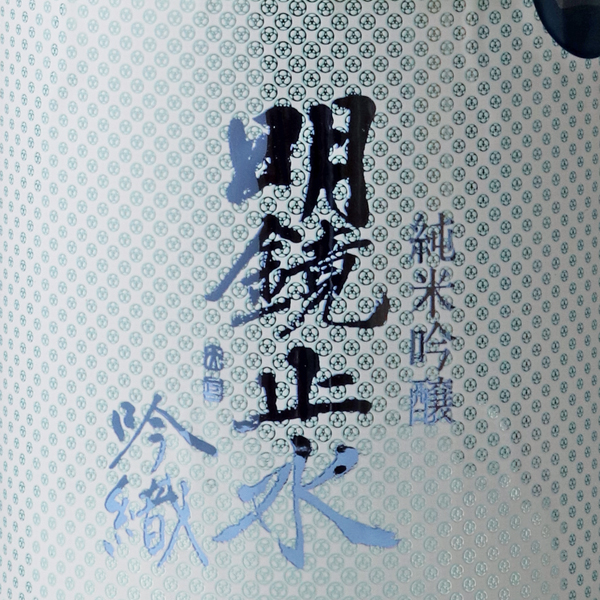 純米吟醸
明鏡止水
吟織